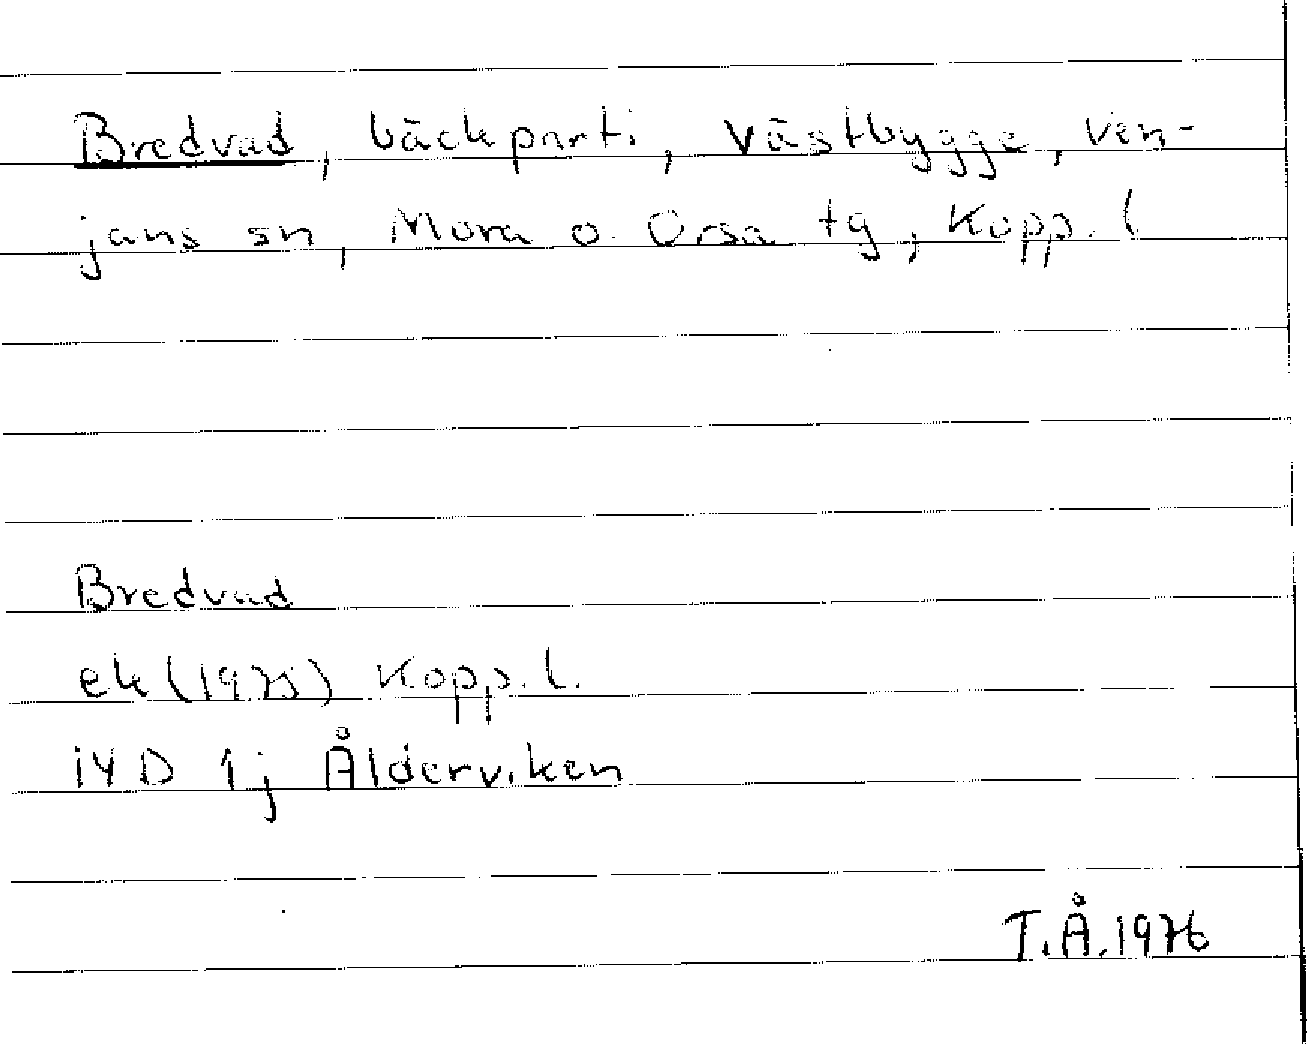 Bredvad, bäckparti, Västbygge, Ven-
jans sn, Mora o. Orsa tg, Kopp. l
Bredvad
ek (1975) Kopp. l.
14 D 1j Ålderviken
T.Å. 1976